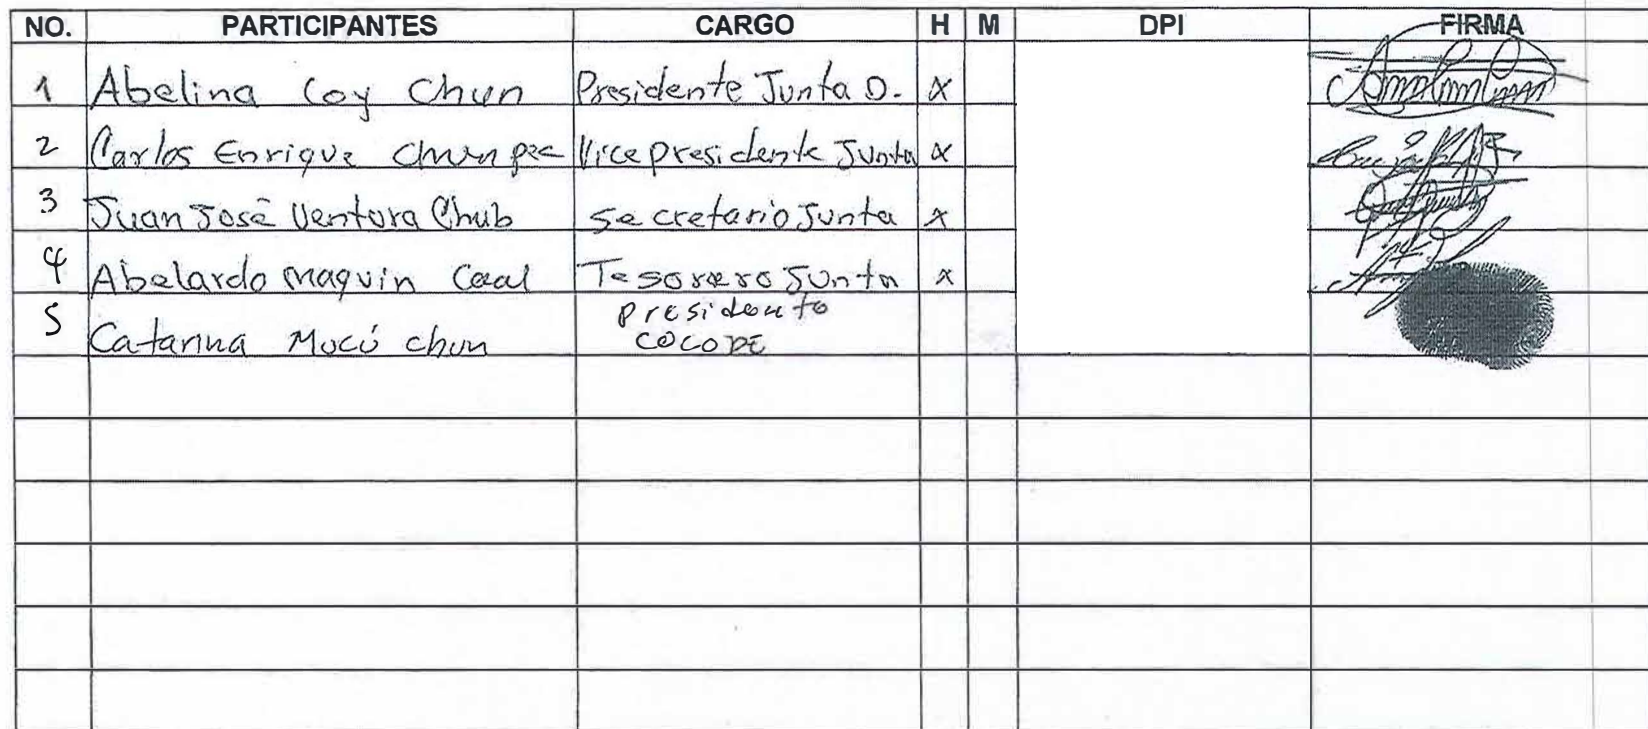 NO. PARTICIPANTES CARGO H M DPI FIRMA
1 Abelina Coy Chun Presidente Junta D. x
2 Carlos Enrique Chun Vicepresidente Junta x
3 Juan José Ventura Chub Secretario Junta x
4 Abelardo Maquin Caal Tesorero Junta x
5 Catarina Mucú chun presidente COCODE